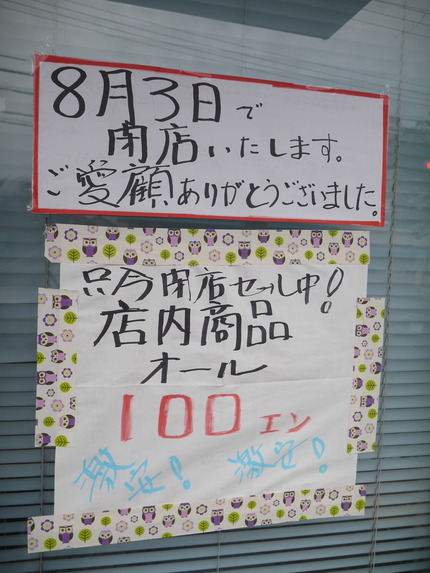 8月3日で
閉店いたします。
ご愛顧ありがとうございました。
只今閉店セール中!
店内商品
オール
100エン
激安! 激安!